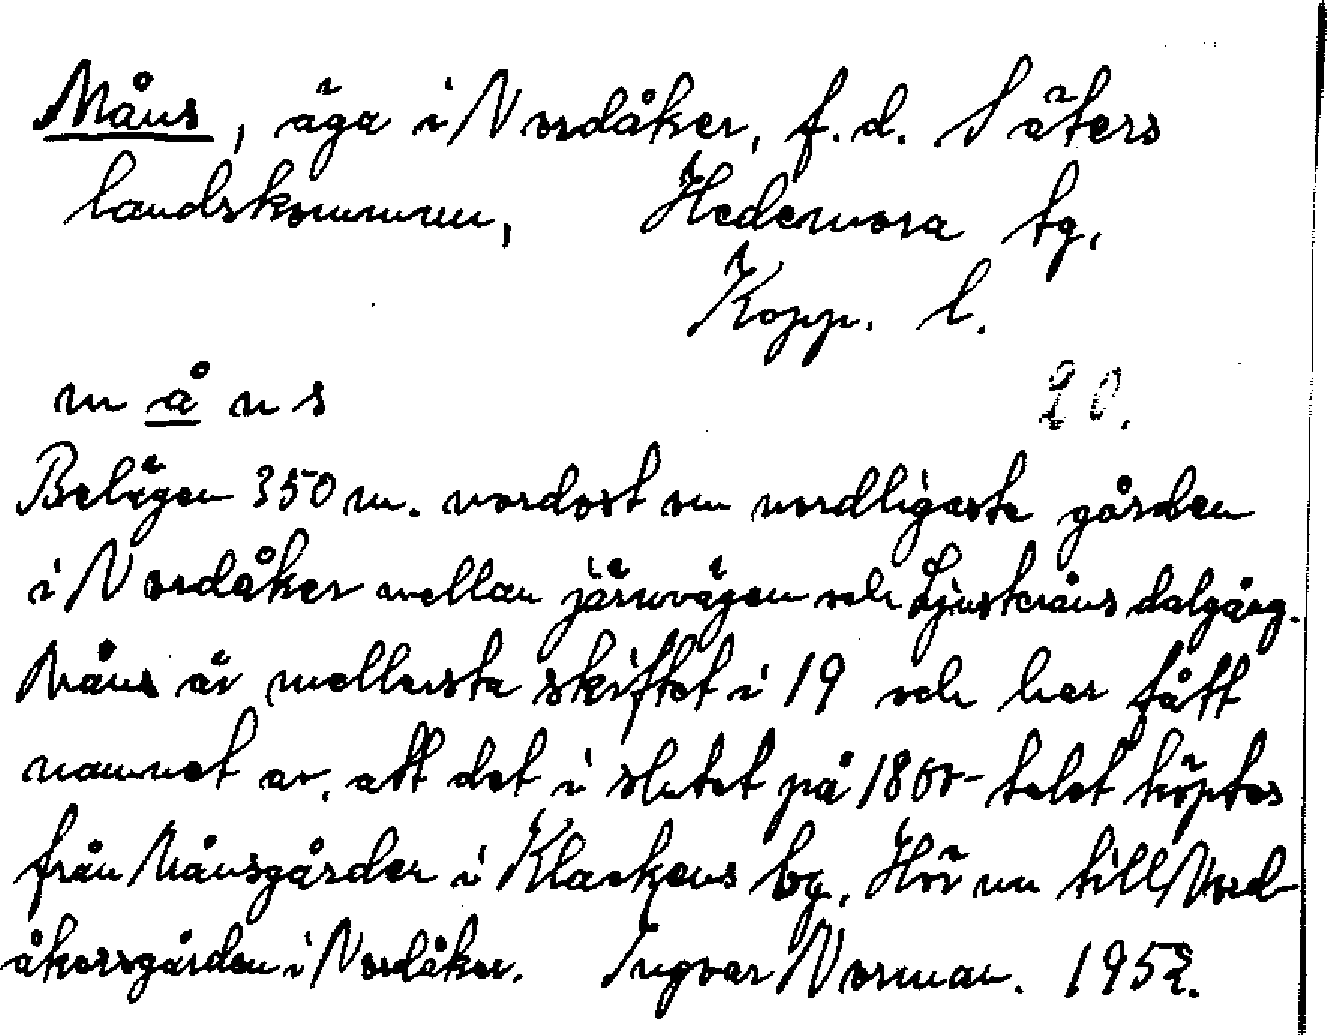 Måns, äga i Nordåker, f.d. Säters
landskommun, Hedemora tg,
Kopp. l.
m å n s 20.
Belägen 350 m. nordost om nordligaste gården
i Nordåker mellan järnvägen och Ljusteråns dalgång.
Måns är mellersta skiftet i 19 och har fått
namnet av, att det i slutet på 1800-talet köptes
från Månsgården i Klackens by. Hör nu till Nord-
åkersgården i Nordåker. Ingvar Norman. 1952.